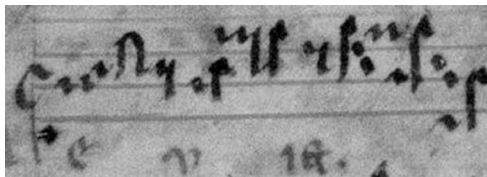 e v ia.